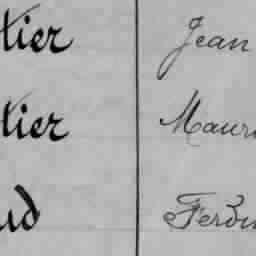 tier Jean
tier Maur
ud Ferdin